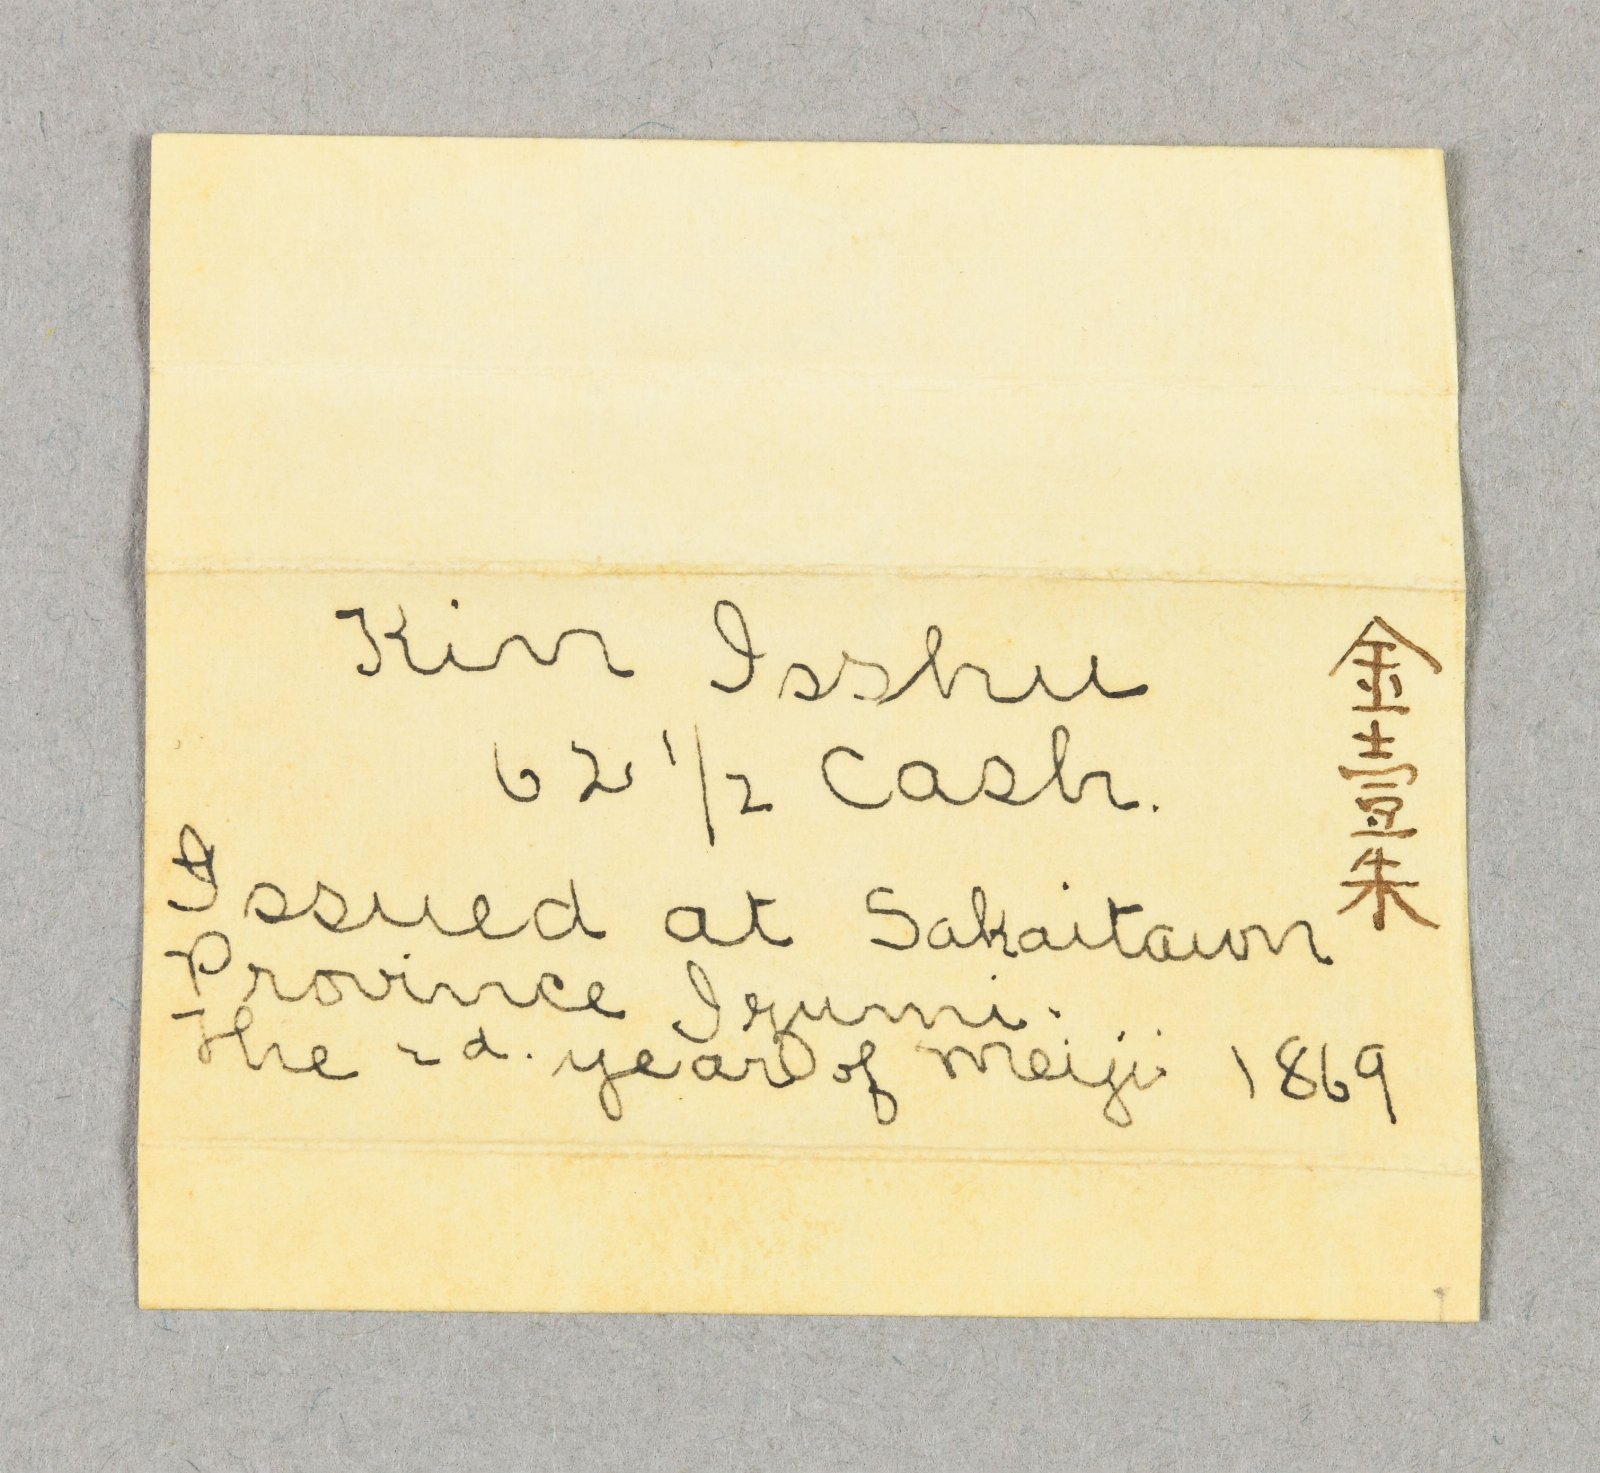 Kin Isshu
62 1/2 Cash.
Issued at Sakaitawn
Province Izumi.
The 2d. year of Meiji 1869
金壹朱